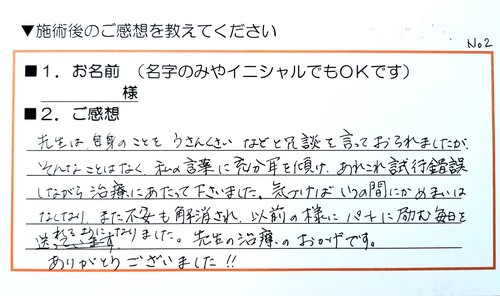 ▼施術後のご感想を教えてください
No2
■1．お名前 （名字のみやイニシャルでもOKです）
様
■2．ご感想
先生は、自身のことを うさんくさい などと冗談を言っておられましたが、
そんなことはなく、私の言葉に充分耳を傾け、あれこれ試行錯誤
しながら治療にあたって下さいました。気づけば いつの間にか めまいは
なくなり、また不安も解消され、以前の様に パートに励む毎日を
送れるようになりました。先生の治療のおかげです。
ありがとうございました!!